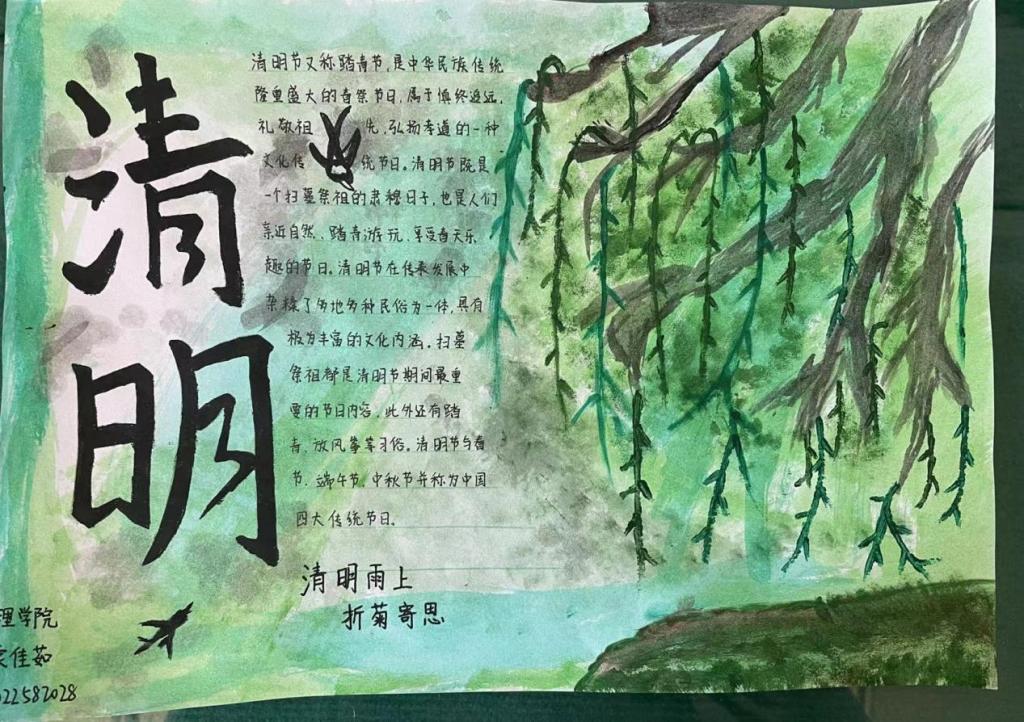 清明
清明节又称踏青节,是中华民族传统
隆重盛大的春祭节日,属于慎终追远、
礼敬祖先、弘扬孝道的一种
文化传统节日。清明节既是
一个扫墓祭祖的肃穆日子,也是人们
亲近自然、踏青游玩、享受春天乐
趣的节日。清明节在传承发展中
杂糅了多地多种民俗为一体,具有
极为丰富的文化内涵。扫墓
祭祖都是清明节期间最重
要的节日内容,此外还有踏
青、放风筝等习俗。清明节与春
节、端午节、中秋节并称为中国
四大传统节日。
清明雨上
折菊寄思
理学院
佳茹
022582028